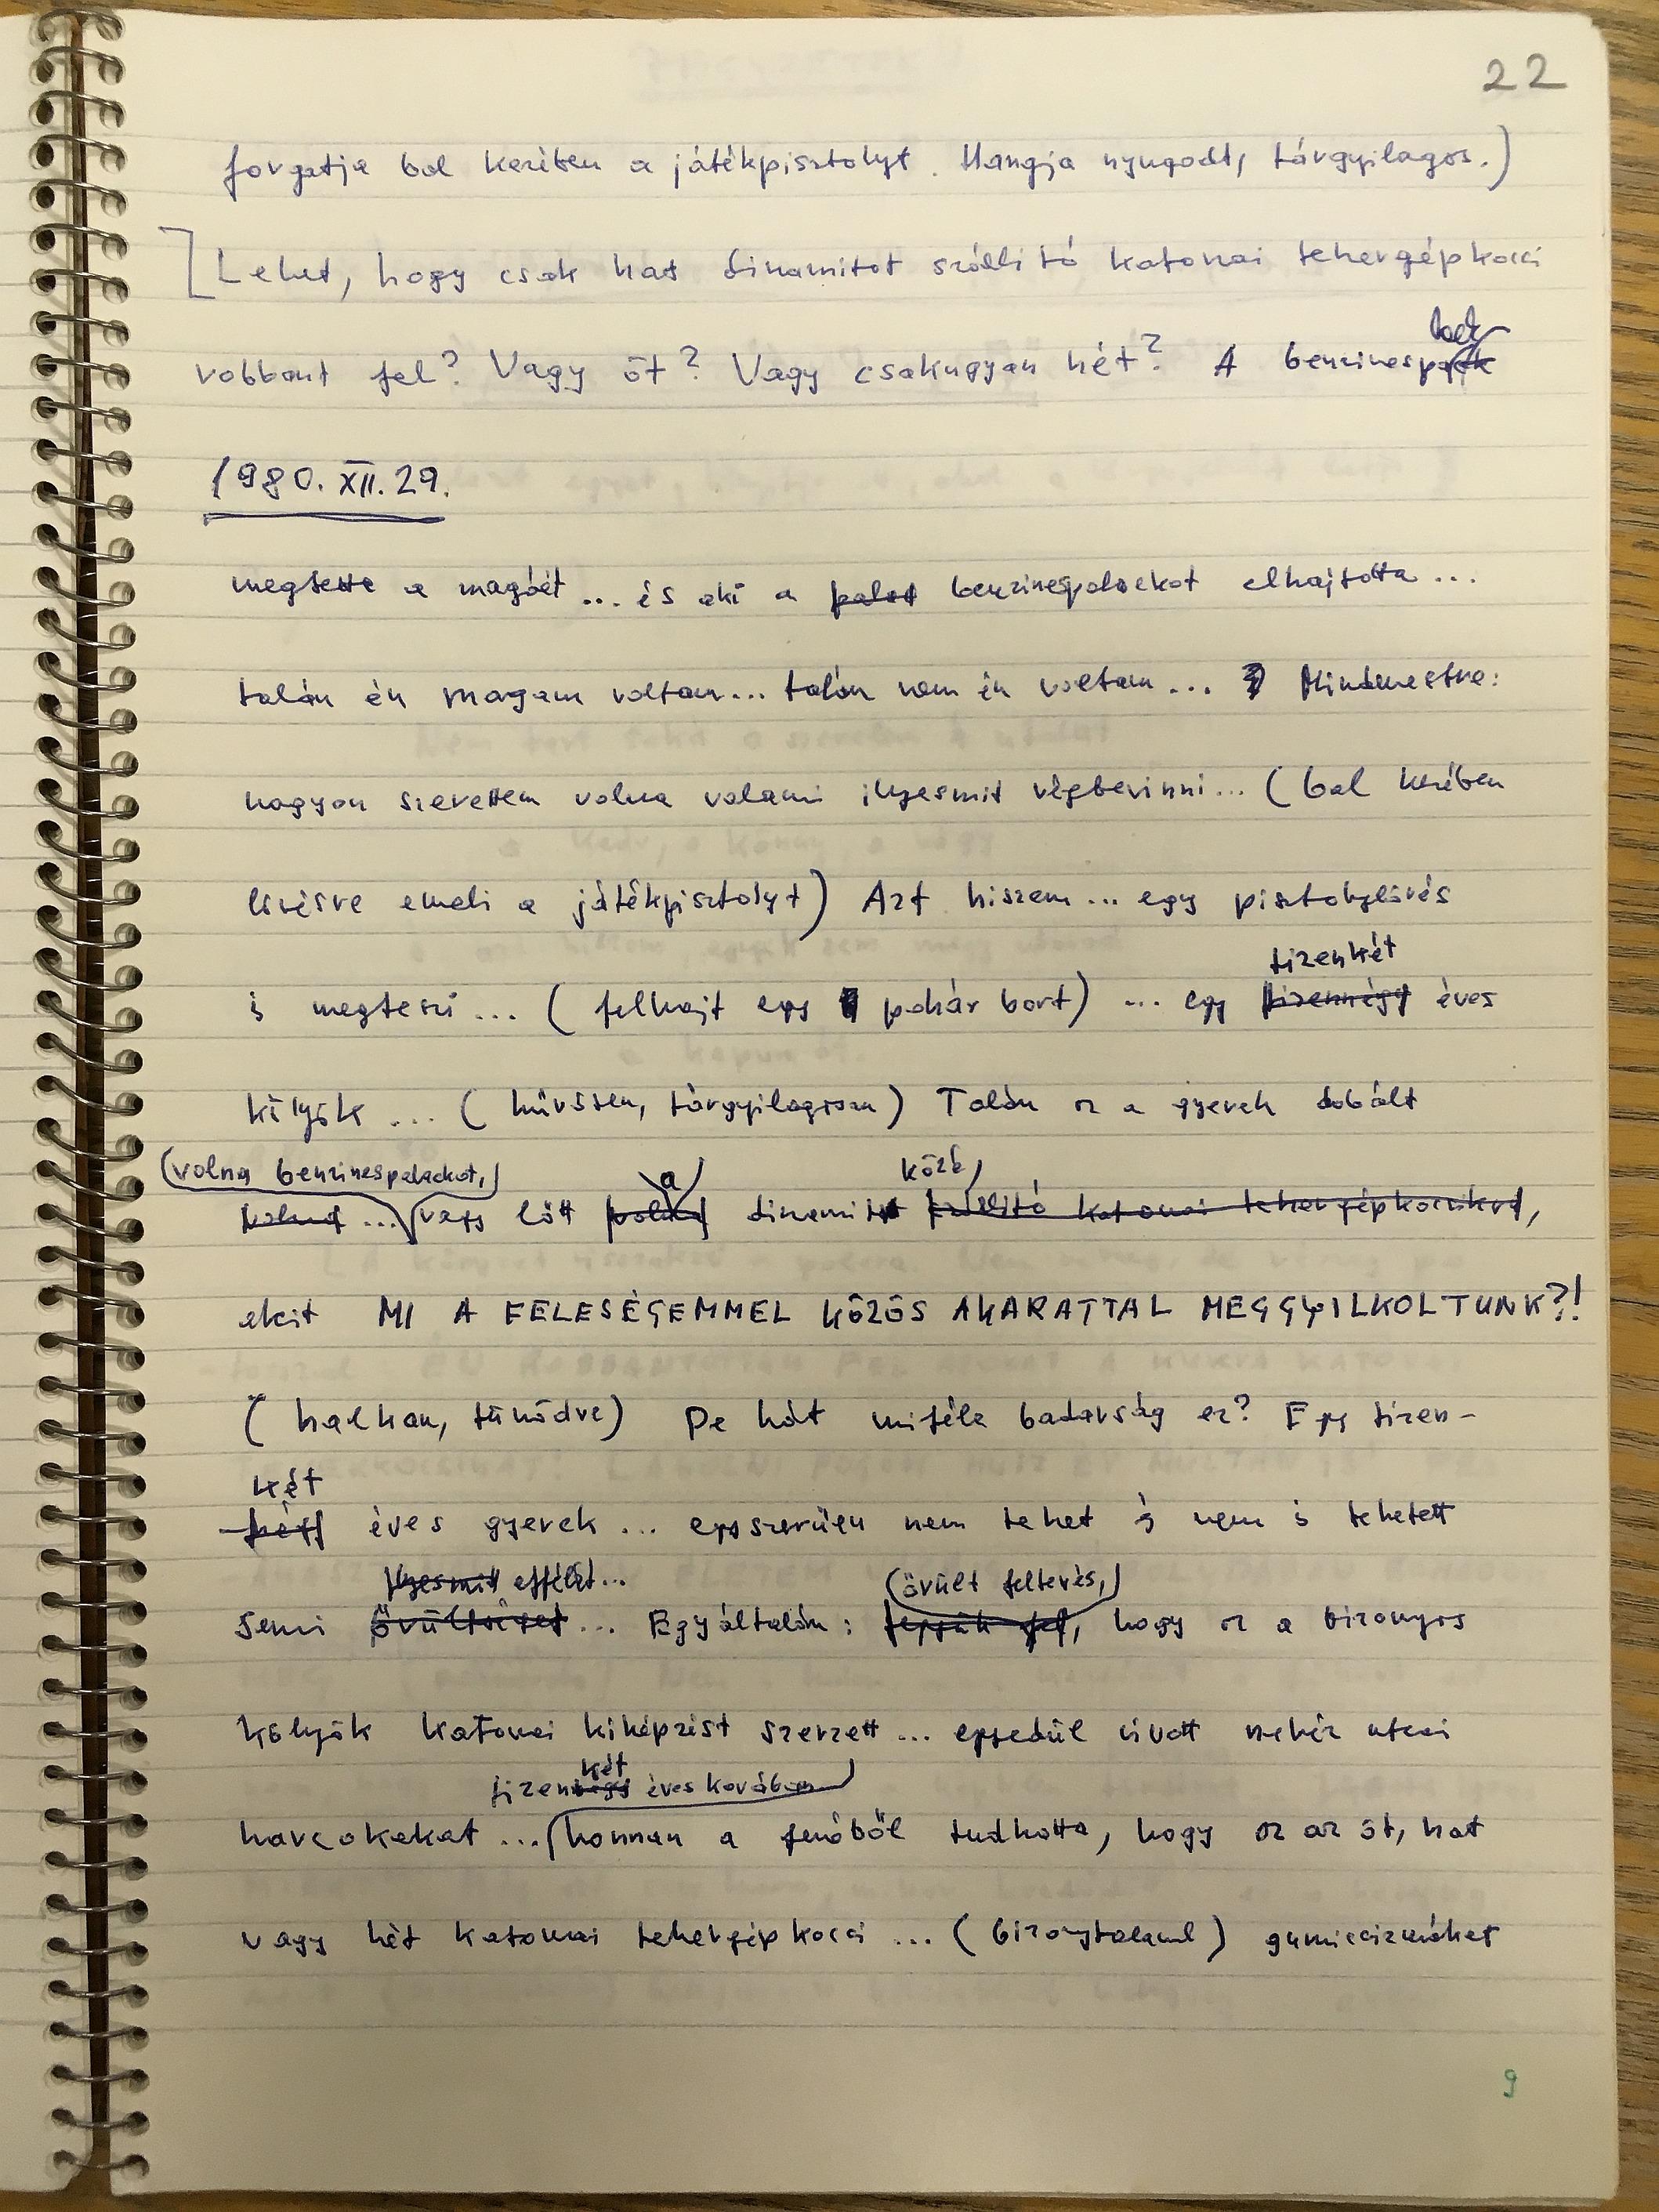 22
forgatja bal kezében a játékpisztolyt. Hangja nyugodt, tárgyilagos.)
[Lehet, hogy csak hat dinamitot szállító katonai tehergépkocsi
robbant fel? Vagy öt? Vagy csakugyan hét? A benzinespalack
1980. XII. 29.
megtette a magáét ... és aki a palac benzinespalackot elhajította ...
talán én magam voltam... talán nem én voltam ... Mindenestre:
nagyon szerettem volna valami ilyesmit végbevinni... (bal kezében
lövésre emeli a játékpisztolyt) Azt hiszem ... egy pisztolylövés
is megteszi ... (felhajt egy pohár bort) ... egy
tizenkét
tizennégy éves
kölyök ... (hűvösen, tárgyilagosan) Talán ez a gyerek dobált
(volna benzinespalackot,) a közé
volna ... vagy lőtt volna dinamitot szállító katonai tehergépkocsikra,
akit MI A FELESÉGEMMEL KÖZÖS AKARATTAL MEGGYILKOLTUNK?!
(halkan, tűnődve) De hát miféle badarság ez? Egy tizen-
két
négy éves gyerek ... egyszerűen nem tehet és nem is tehetett
ilyesmit effélét... (őrült feltevés,)
semi őrültséget ... Egyáltalán: tegyük fel, hogy ez a bizonyos
kölyök katonai kiképzést szerzett ... egyedül vívott nehéz utcai
két
tizennégy éves korában
harcokakat ... honnan a fenéből tudhatta, hogy ez az öt, hat
vagy hét katonai tehergépkocsi ... (bizonytalanul) gumicsizmákat
9